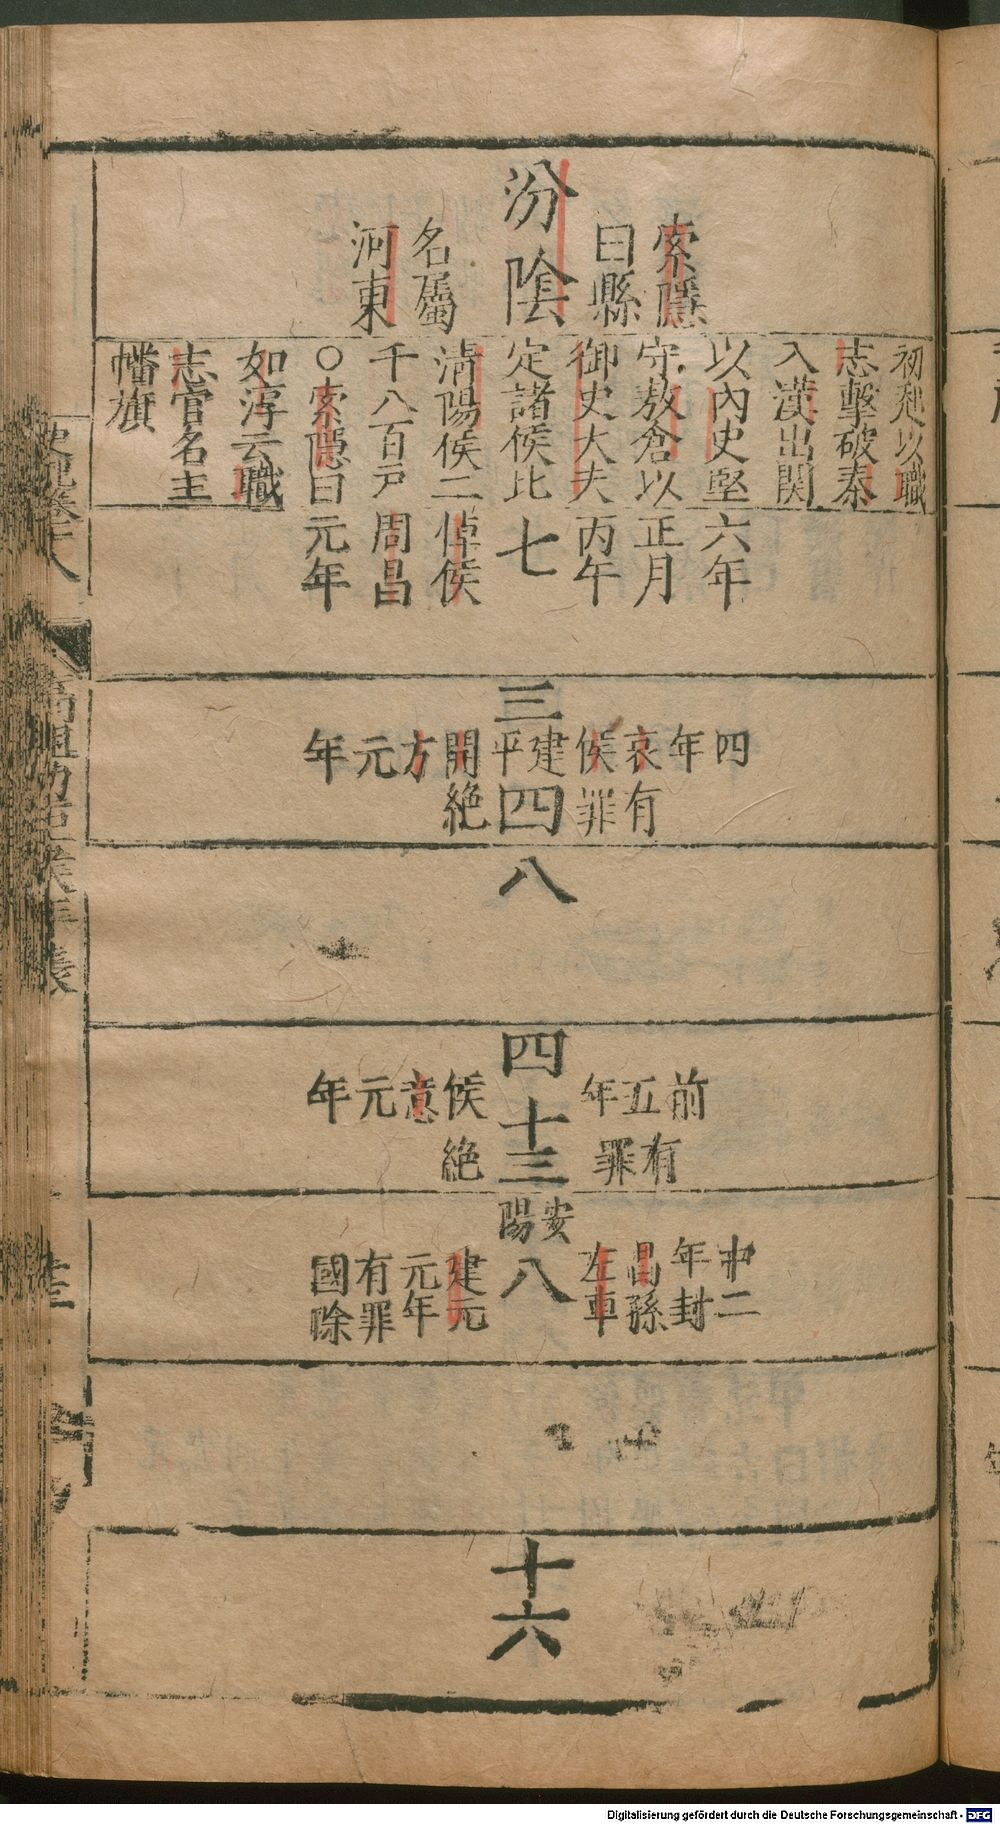 汾陰
索隱
曰縣
名屬
河東
初起以職
志擊破秦
入漢出関
以內史堅
守敖倉以
御史大夫
定諸侯比
清陽侯二
千八百戸
○索隱曰
如淳云職
志官名主
幡旗
六年
正月
丙午
七
悼侯
周昌
元年
三
四年哀侯
建平
開方元年
四
有罪
絶
八
四
前五年
侯意元年
十三
有罪
絶
安陽
中二
年封
昌孫
左車
八
建元
元年
有罪
國除
十六
高祖功臣侯年表
Digitalisierung gefördert durch die Deutsche Forschungsgemeinschaft - DFG